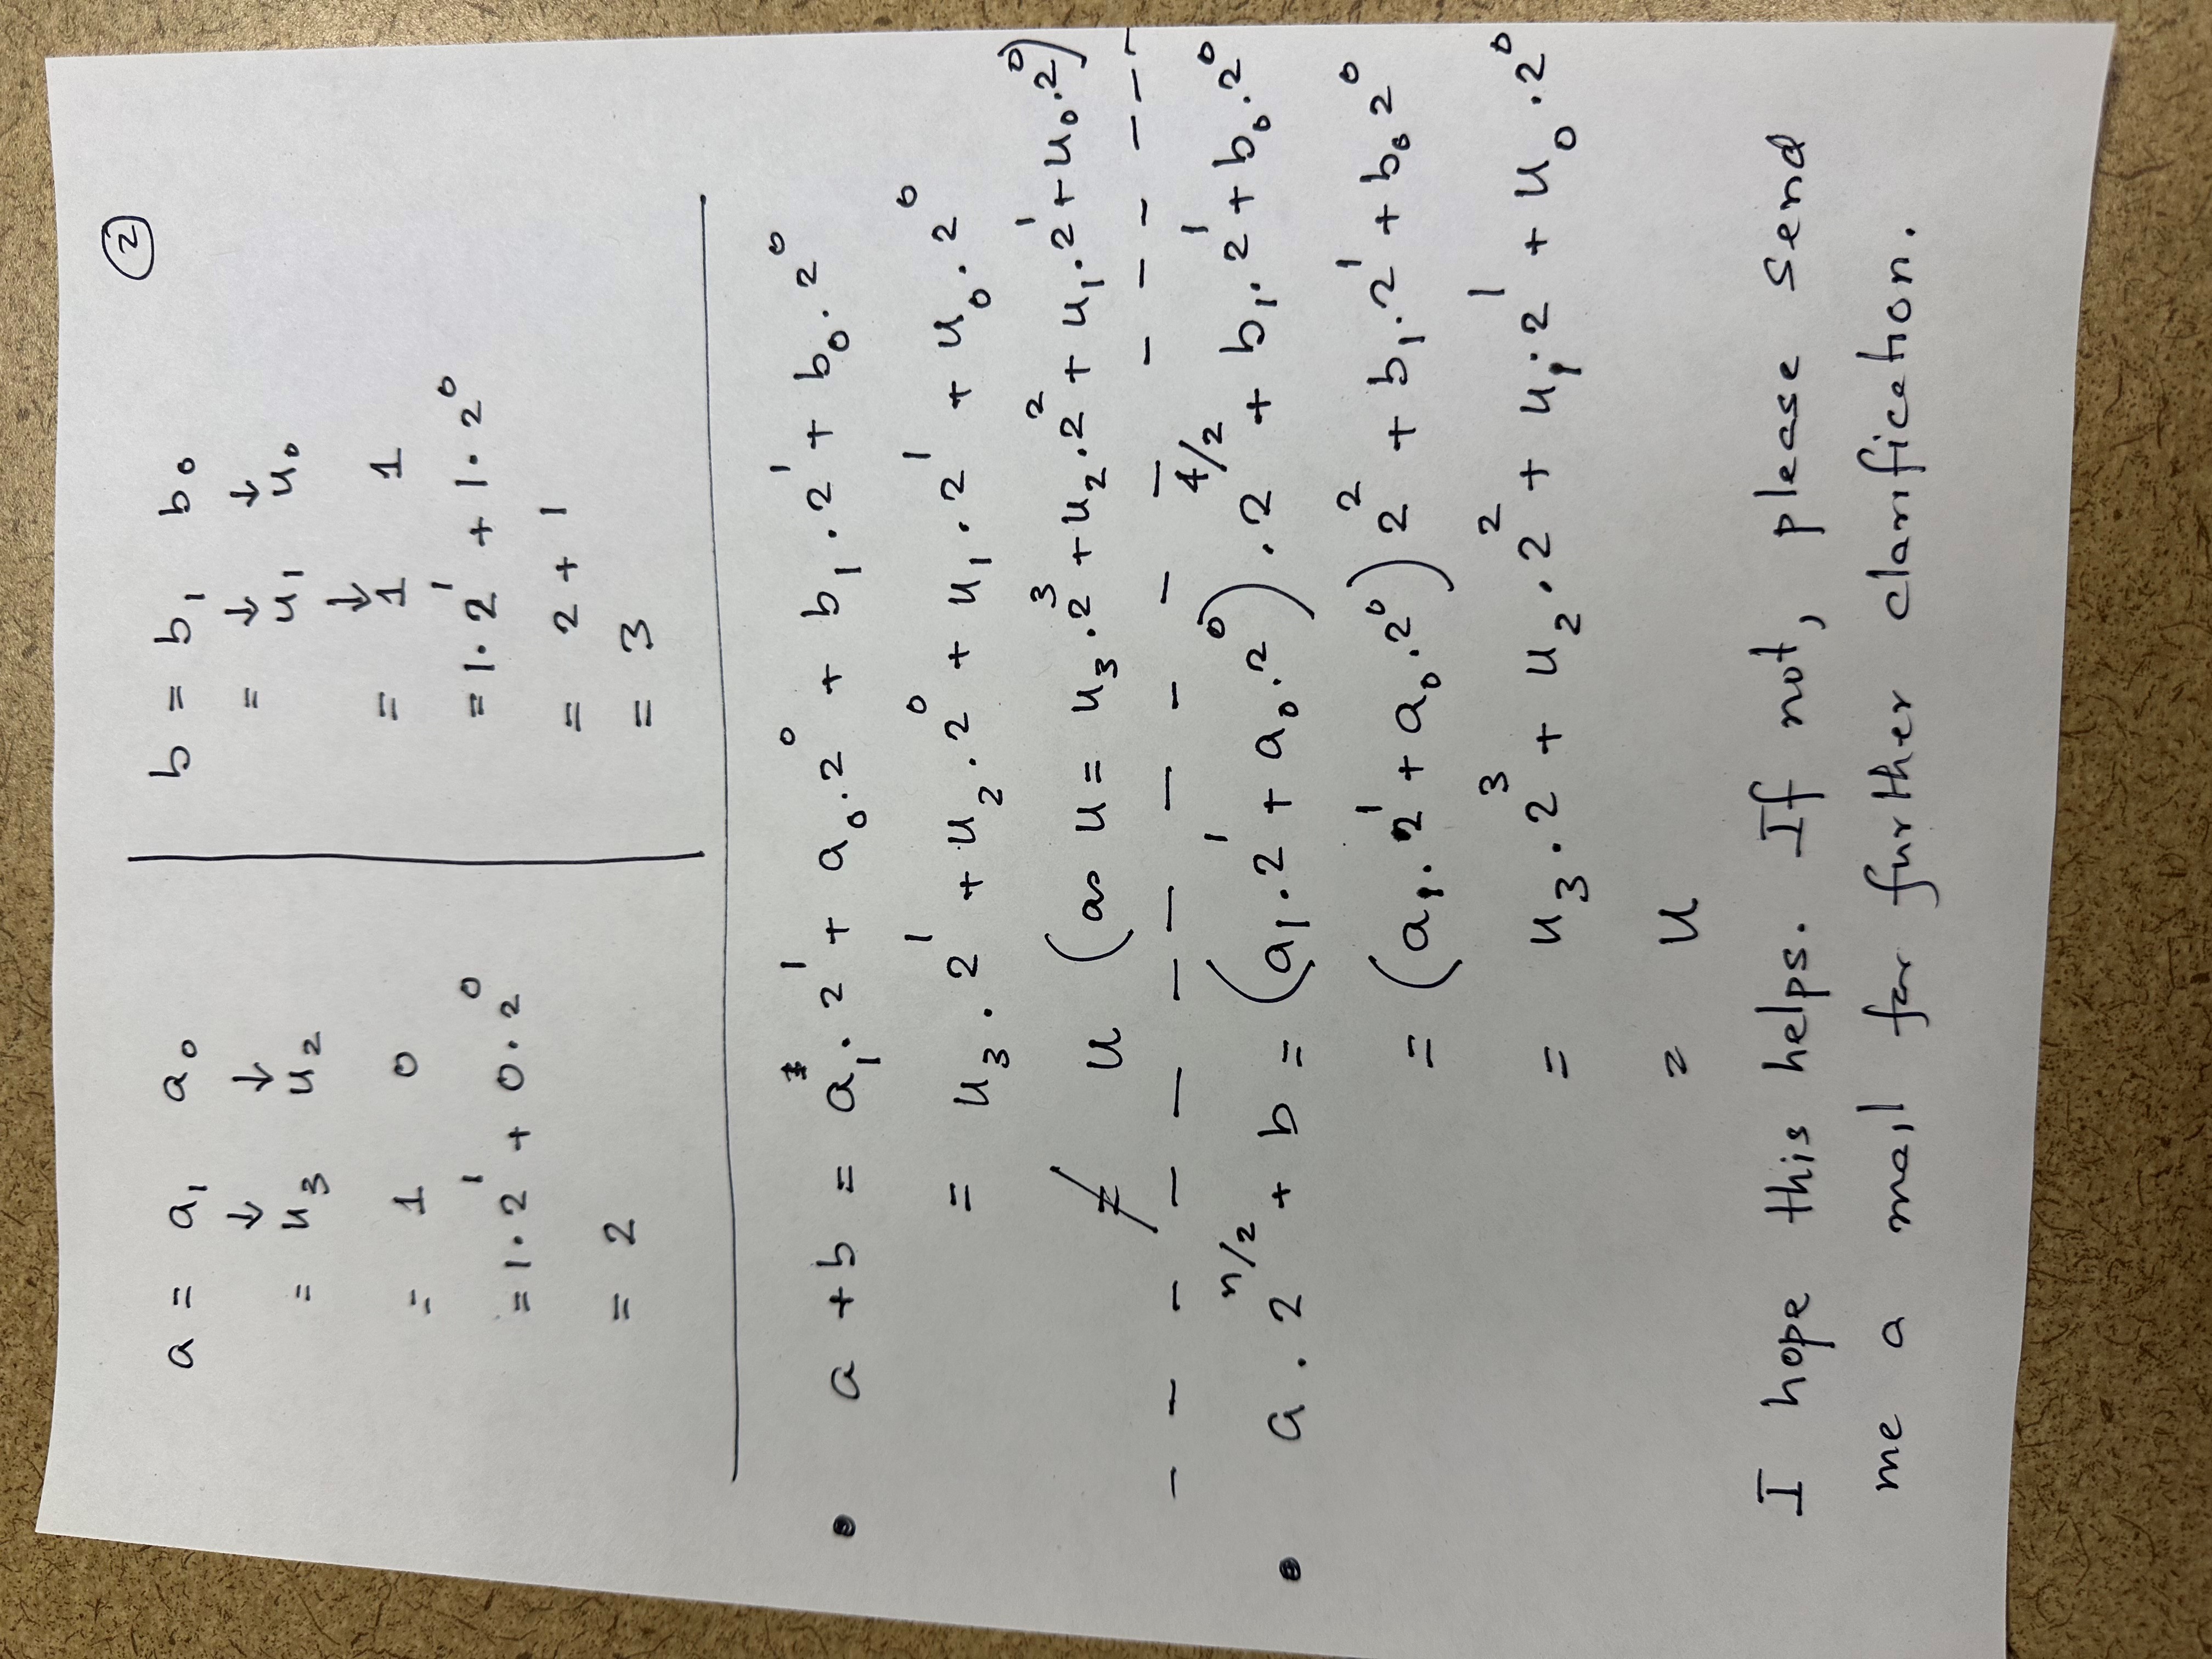 ②
a = a₁ a₀
↓ ↓
= u₃ u₂
= 1 0
= 1·2¹ + 0·2⁰
= 2
b = b₁ b₀
= ↓ ↓
u₁ u₀
↓
= 1 1
= 1·2¹ + 1·2⁰
= 2 + 1
= 3
• a + b = a₁·2¹ + a₀·2⁰ + b₁·2¹ + b₀·2⁰
= u₃·2¹ + u₂·2⁰ + u₁·2¹ + u₀·2⁰
≠ u (as u = u₃·2³ + u₂·2² + u₁·2¹ + u₀·2⁰)
• a·2^(n/2) + b = (a₁·2¹ + a₀·2⁰)·2^(4/2) + b₁·2¹ + b₀·2⁰
= (a₁·2¹ + a₀·2⁰) 2² + b₁·2¹ + b₀ 2⁰
= u₃·2³ + u₂·2² + u₁·2¹ + u₀·2⁰
= u
I hope this helps. If not, please send
me a mail for further clarification.